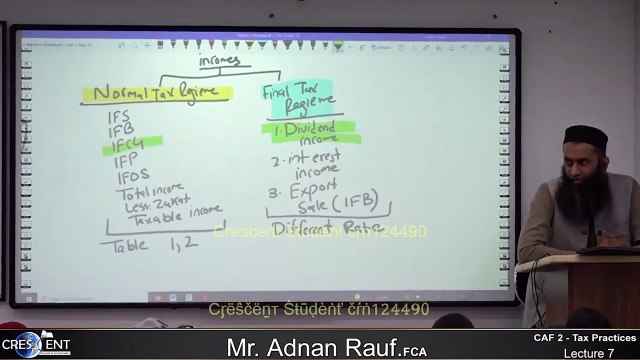 incomes
Normal Tax Regime
IFS
IFB
IFCG
IFP
IFOS
Total income
Less: Zakat
Taxable income
Table 1, 2
Final Tax
Regieme
1. Dividend
income
2. interest
income
3. Export
Sale (IFB)
Different Rates
Crescent Student crn124490
Çŗëŝčëņт Ŝtūḍèṅť čŕṅ124490
CRESCENT
Mr. Adnan Rauf.FCA
CAF 2 - Tax Practices
Lecture 7